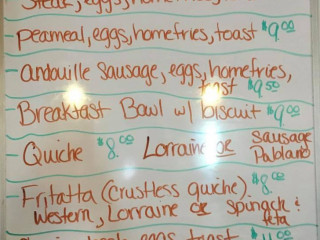 Steak, eggs, homefries,
Peameal, eggs, homefries, toast $9.00
andouille Sausage, eggs, homefries,
toast $9.50
Breakfast Bowl w/ biscuit $9.00
Quiche $8.00 Lorraine or Sausage
Publano
Fritatta (Crustless quiche). $8.00
Western, Lorraine or Spinach &
feta
eggs, toast